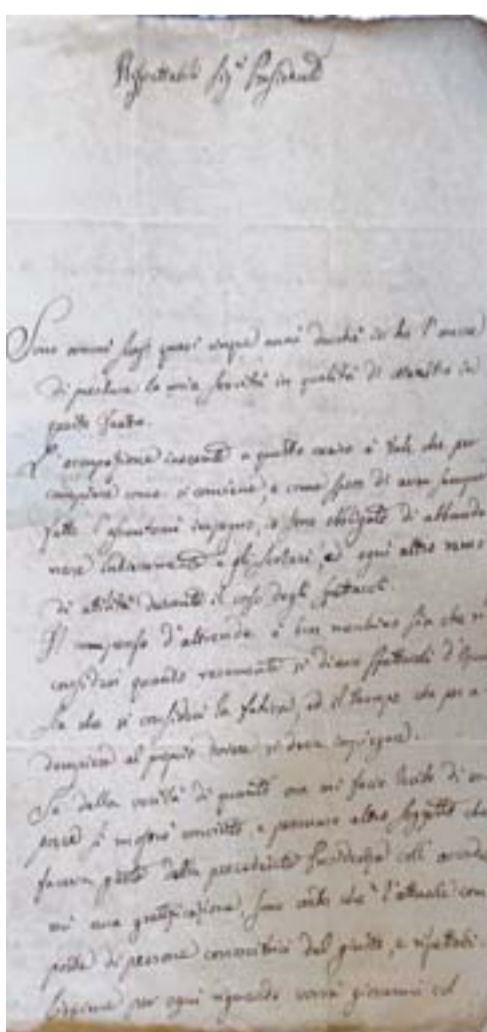 Rispettabili Sig.ri Presidenti
Sono ormai scorsi quasi cinque anni dacchè io ho l'onore
di prestare la mia servitù in qualità di Maestro in
questo Teatro.
L'occupazione inerente a questo carico è tale che per
compiere come si conviene, e come spero di aver sempre
fatto l'assuntomi impegno, io sono obbligato di abbando
nare intieramente e gli scolari, ed ogni altro ramo
di utilità durante il corso degli spettacoli.
Il compenso d'altronde è ben meschino sia che si
consideri quando raramente si diano spettacoli d'Opera
sia che si consideri la fatica, ed il tempo che per a
dempiere al proprio dovere si deve impiegare.
Se della verità di quanto ora mi faccio lecito di es
porre si mostrò convinto, e persuaso altro soggetto che
faceva parte della precedente Presidenza coll'accordar
mi una gratificazione, sono certo che l'attuale com
posta di persone conoscitrici del giusto, e rispettabi
lissime per ogni riguardo vorrà giovarmi col